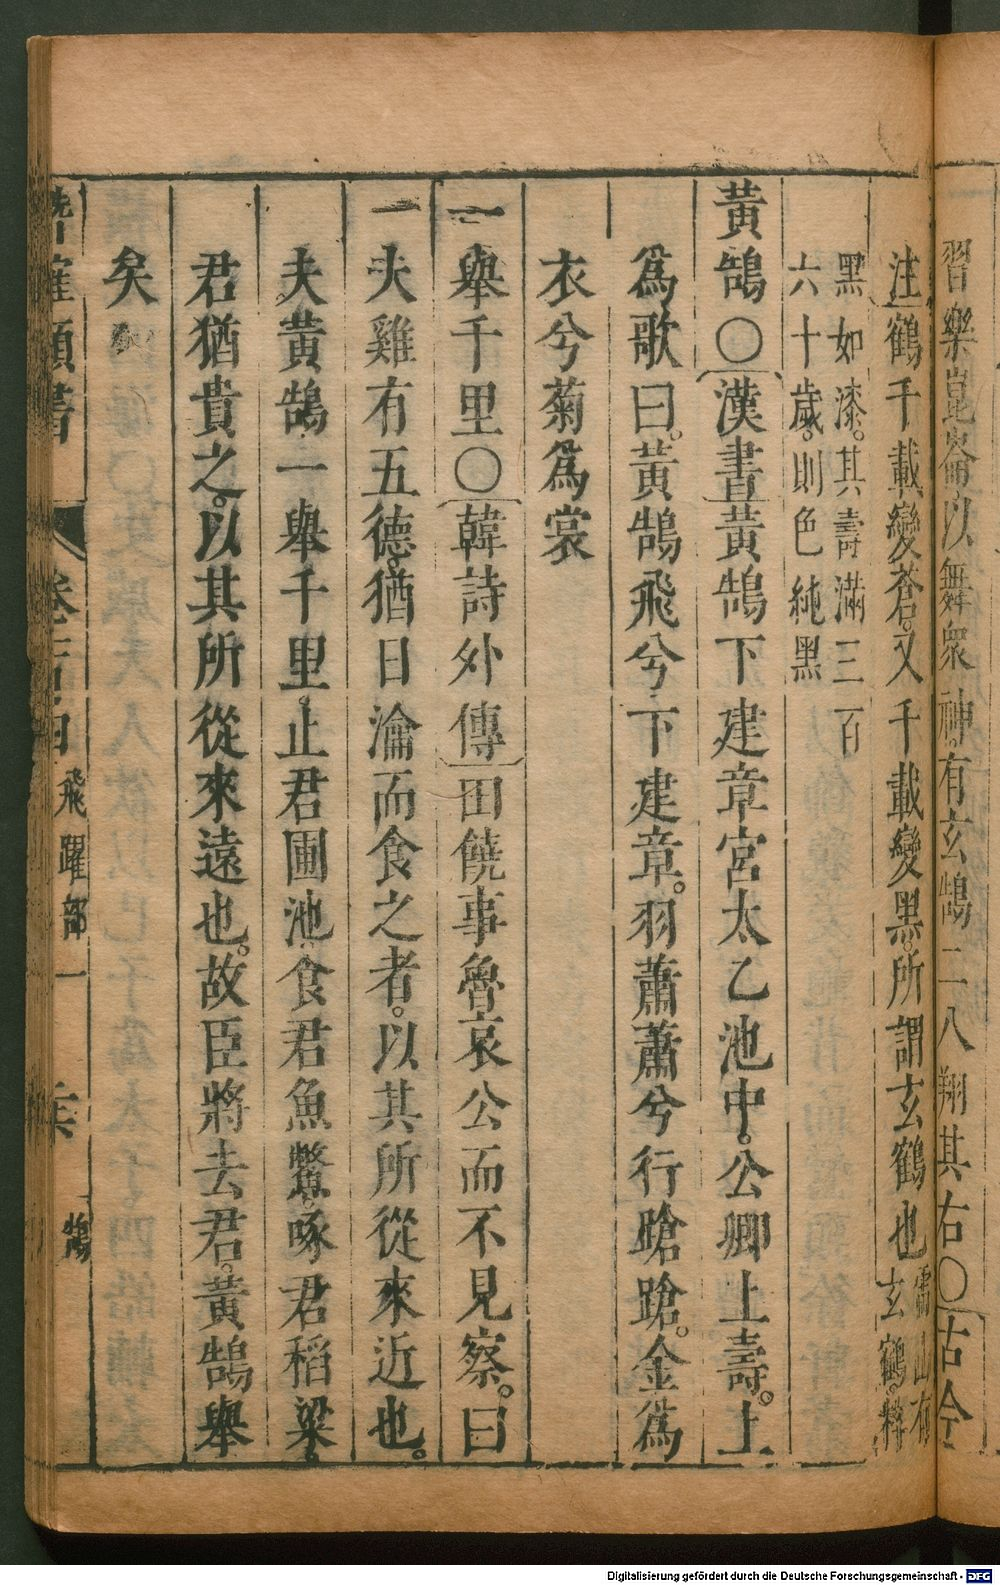 習樂崑崙以舞衆神。有玄鵠二八翔其右〇古今
注鶴千載變蒼。又千載變黑。所謂玄鶴也
山有玄鶴。粹
黑如漆。其壽滿三百
六十歲。則色純黑
黃鵠〇漢書黃鵠下建章宮太乙池中。公卿上壽。上
爲歌曰。黃鵠飛兮下建章。羽蕭蕭兮行蹌蹌。金爲
衣兮菊爲裳
一舉千里〇韓詩外傳田饒事魯哀公而不見察。曰
一夫雞有五德。猶日瀹而食之者。以其所從來近也。
夫黃鵠一舉千里。止君圃池。食君魚鱉。啄君稻粱。
君猶貴之。以其所從來遠也。故臣將去君。黃鵠舉
矣
類書 卷 飛躍部一 鵠
Digitalisierung gefördert durch die Deutsche Forschungsgemeinschaft - DFG